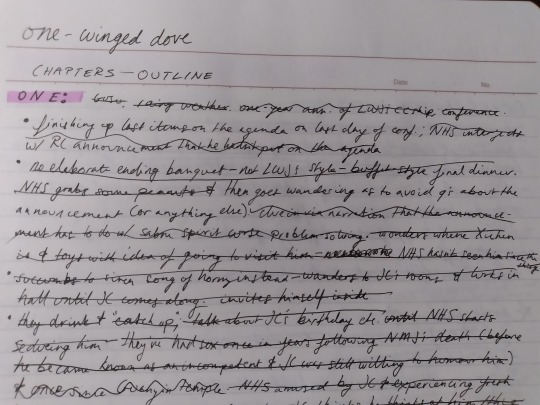 one-winged dove
CHAPTERS — OUTLINE
Date: No.
ONE: rainy weather. one-year ann. of LWJ's cc-ship conference.
• finishing up last items on the agenda on last day of conf.; NHS interjects
w/ RC announcement that he hadn't put on the agenda
• no elaborate ending banquet - not LWJ's style - buffet-style final dinner.
NHS grabs some peanuts & then goes wandering as to avoid q's about the
announcement (or anything else) clue in via narration that the announce-
ment has to do w/ sabre spirit curse problem solving. wonders where Xichen
is & toys with idea of going to visit him NHS hasn't seen him since the
• succumbs to siren song of horny instead - wanders to JC's rooms & lurks in
hall until JC comes along. invites himself inside
• they drink & "catch up," talk about JC's birthday etc until NHS starts
seducing him - They've had sex once in years following NMJ's death (before
he became known as an incompetent & JC was still willing to humour him)
& once since Guanyin temple - NHS amused by JC & experiencing fresh